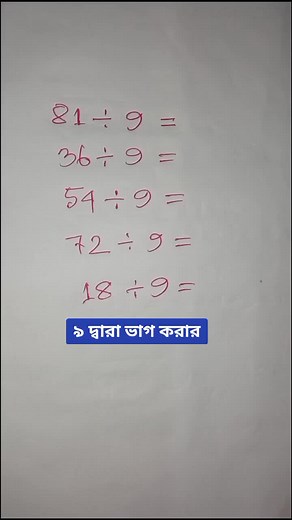 81 ÷ 9 =
36 ÷ 9 =
54 ÷ 9 =
72 ÷ 9 =
18 ÷ 9 =
৯ দ্বারা ভাগ করার